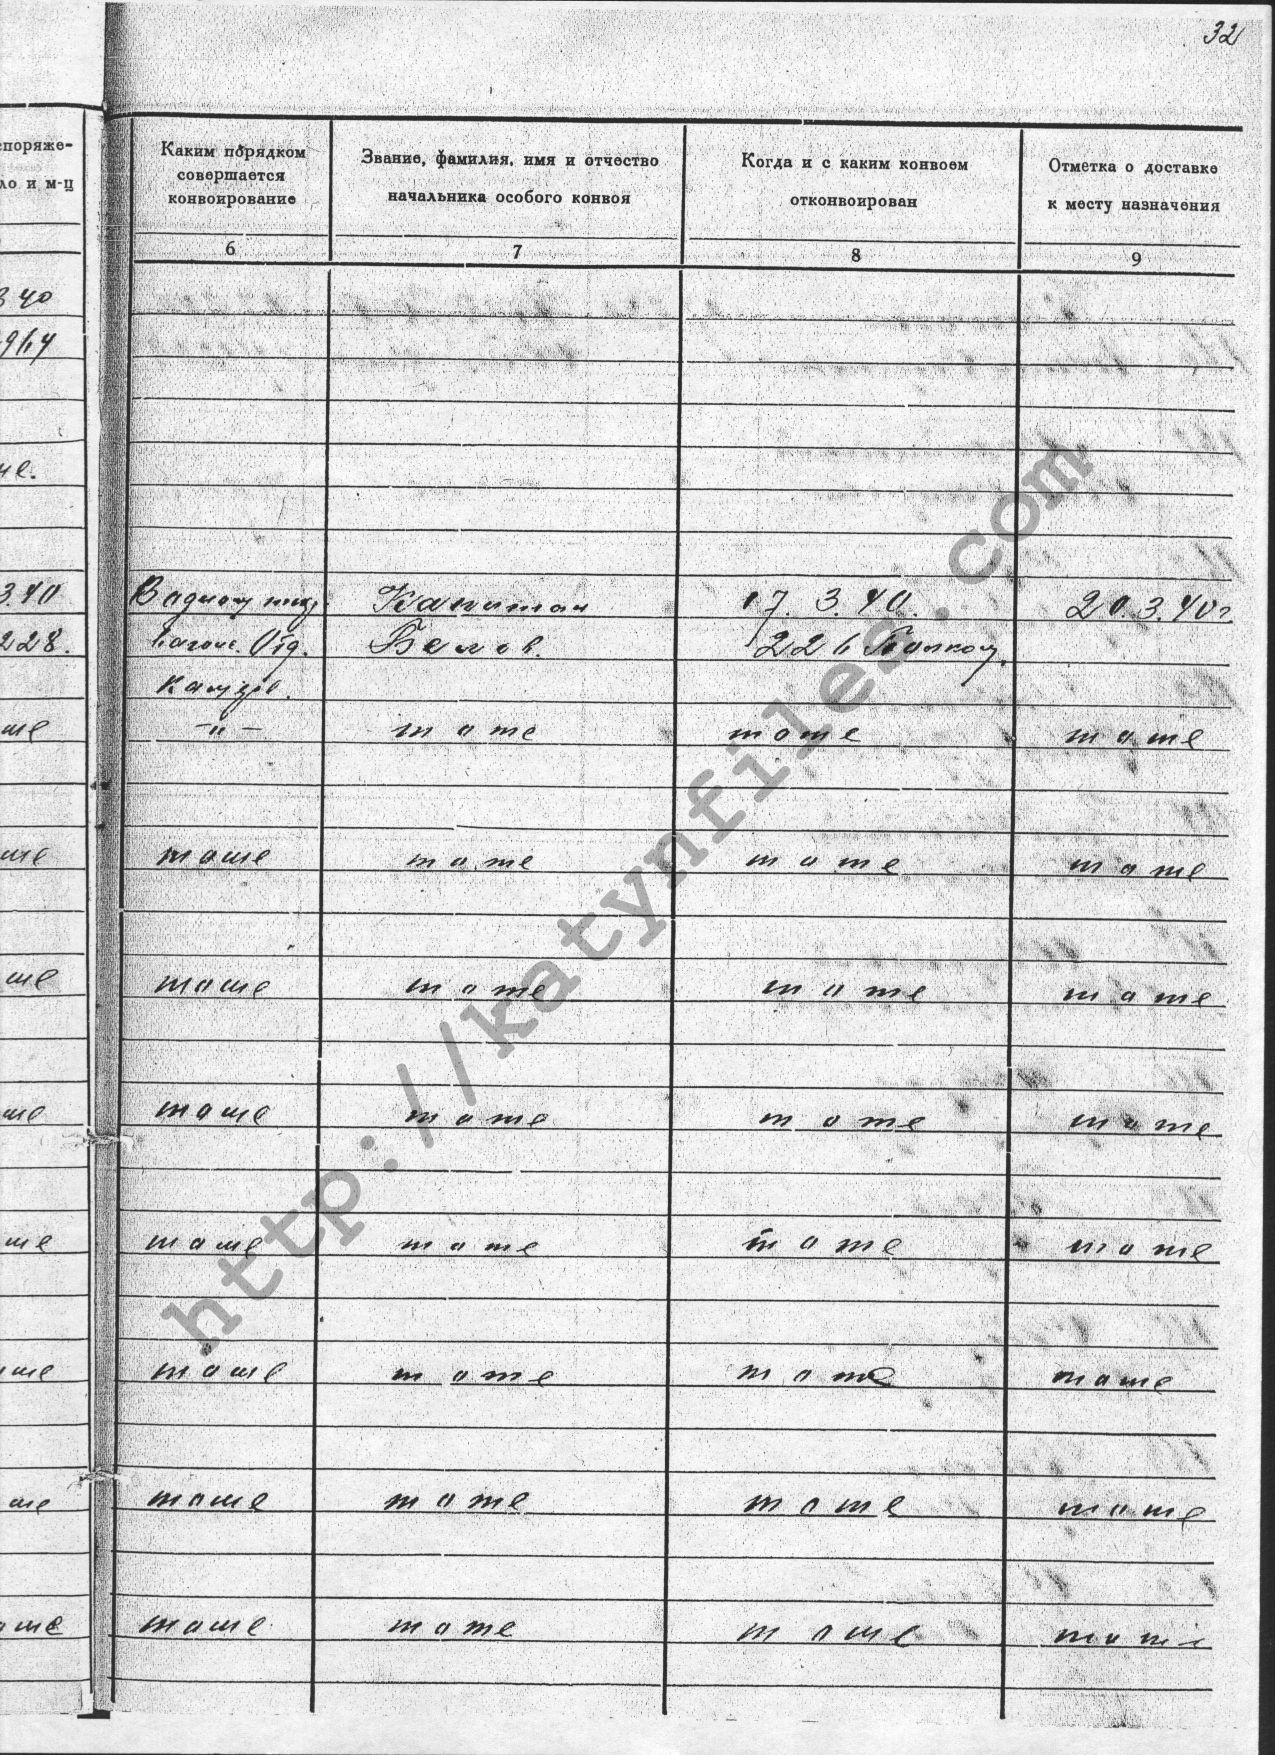 32
споряже-
ло и м-ц
Каким порядком
совершается
конвоирование
Звание, фамилия, имя и отчество
начальника особого конвоя
Когда и с каким конвоем
отконвоирован
Отметка о доставке
к месту назначения
6 7 8 9
3 40
3.40 В одном Капитан 17. 3. 40. 20.3.40г
228. вагоне. Отд. Белов. 226 Полком.
камере.
ше —"— тоже тоже тоже
ше тоже тоже тоже тоже
ше тоже тоже тоже тоже
ше тоже тоже тоже тоже
ше тоже тоже тоже тоже
ше тоже тоже тоже тоже
ше тоже тоже тоже тоже
оше тоже тоже тоже тоже
http://katynfiles.com